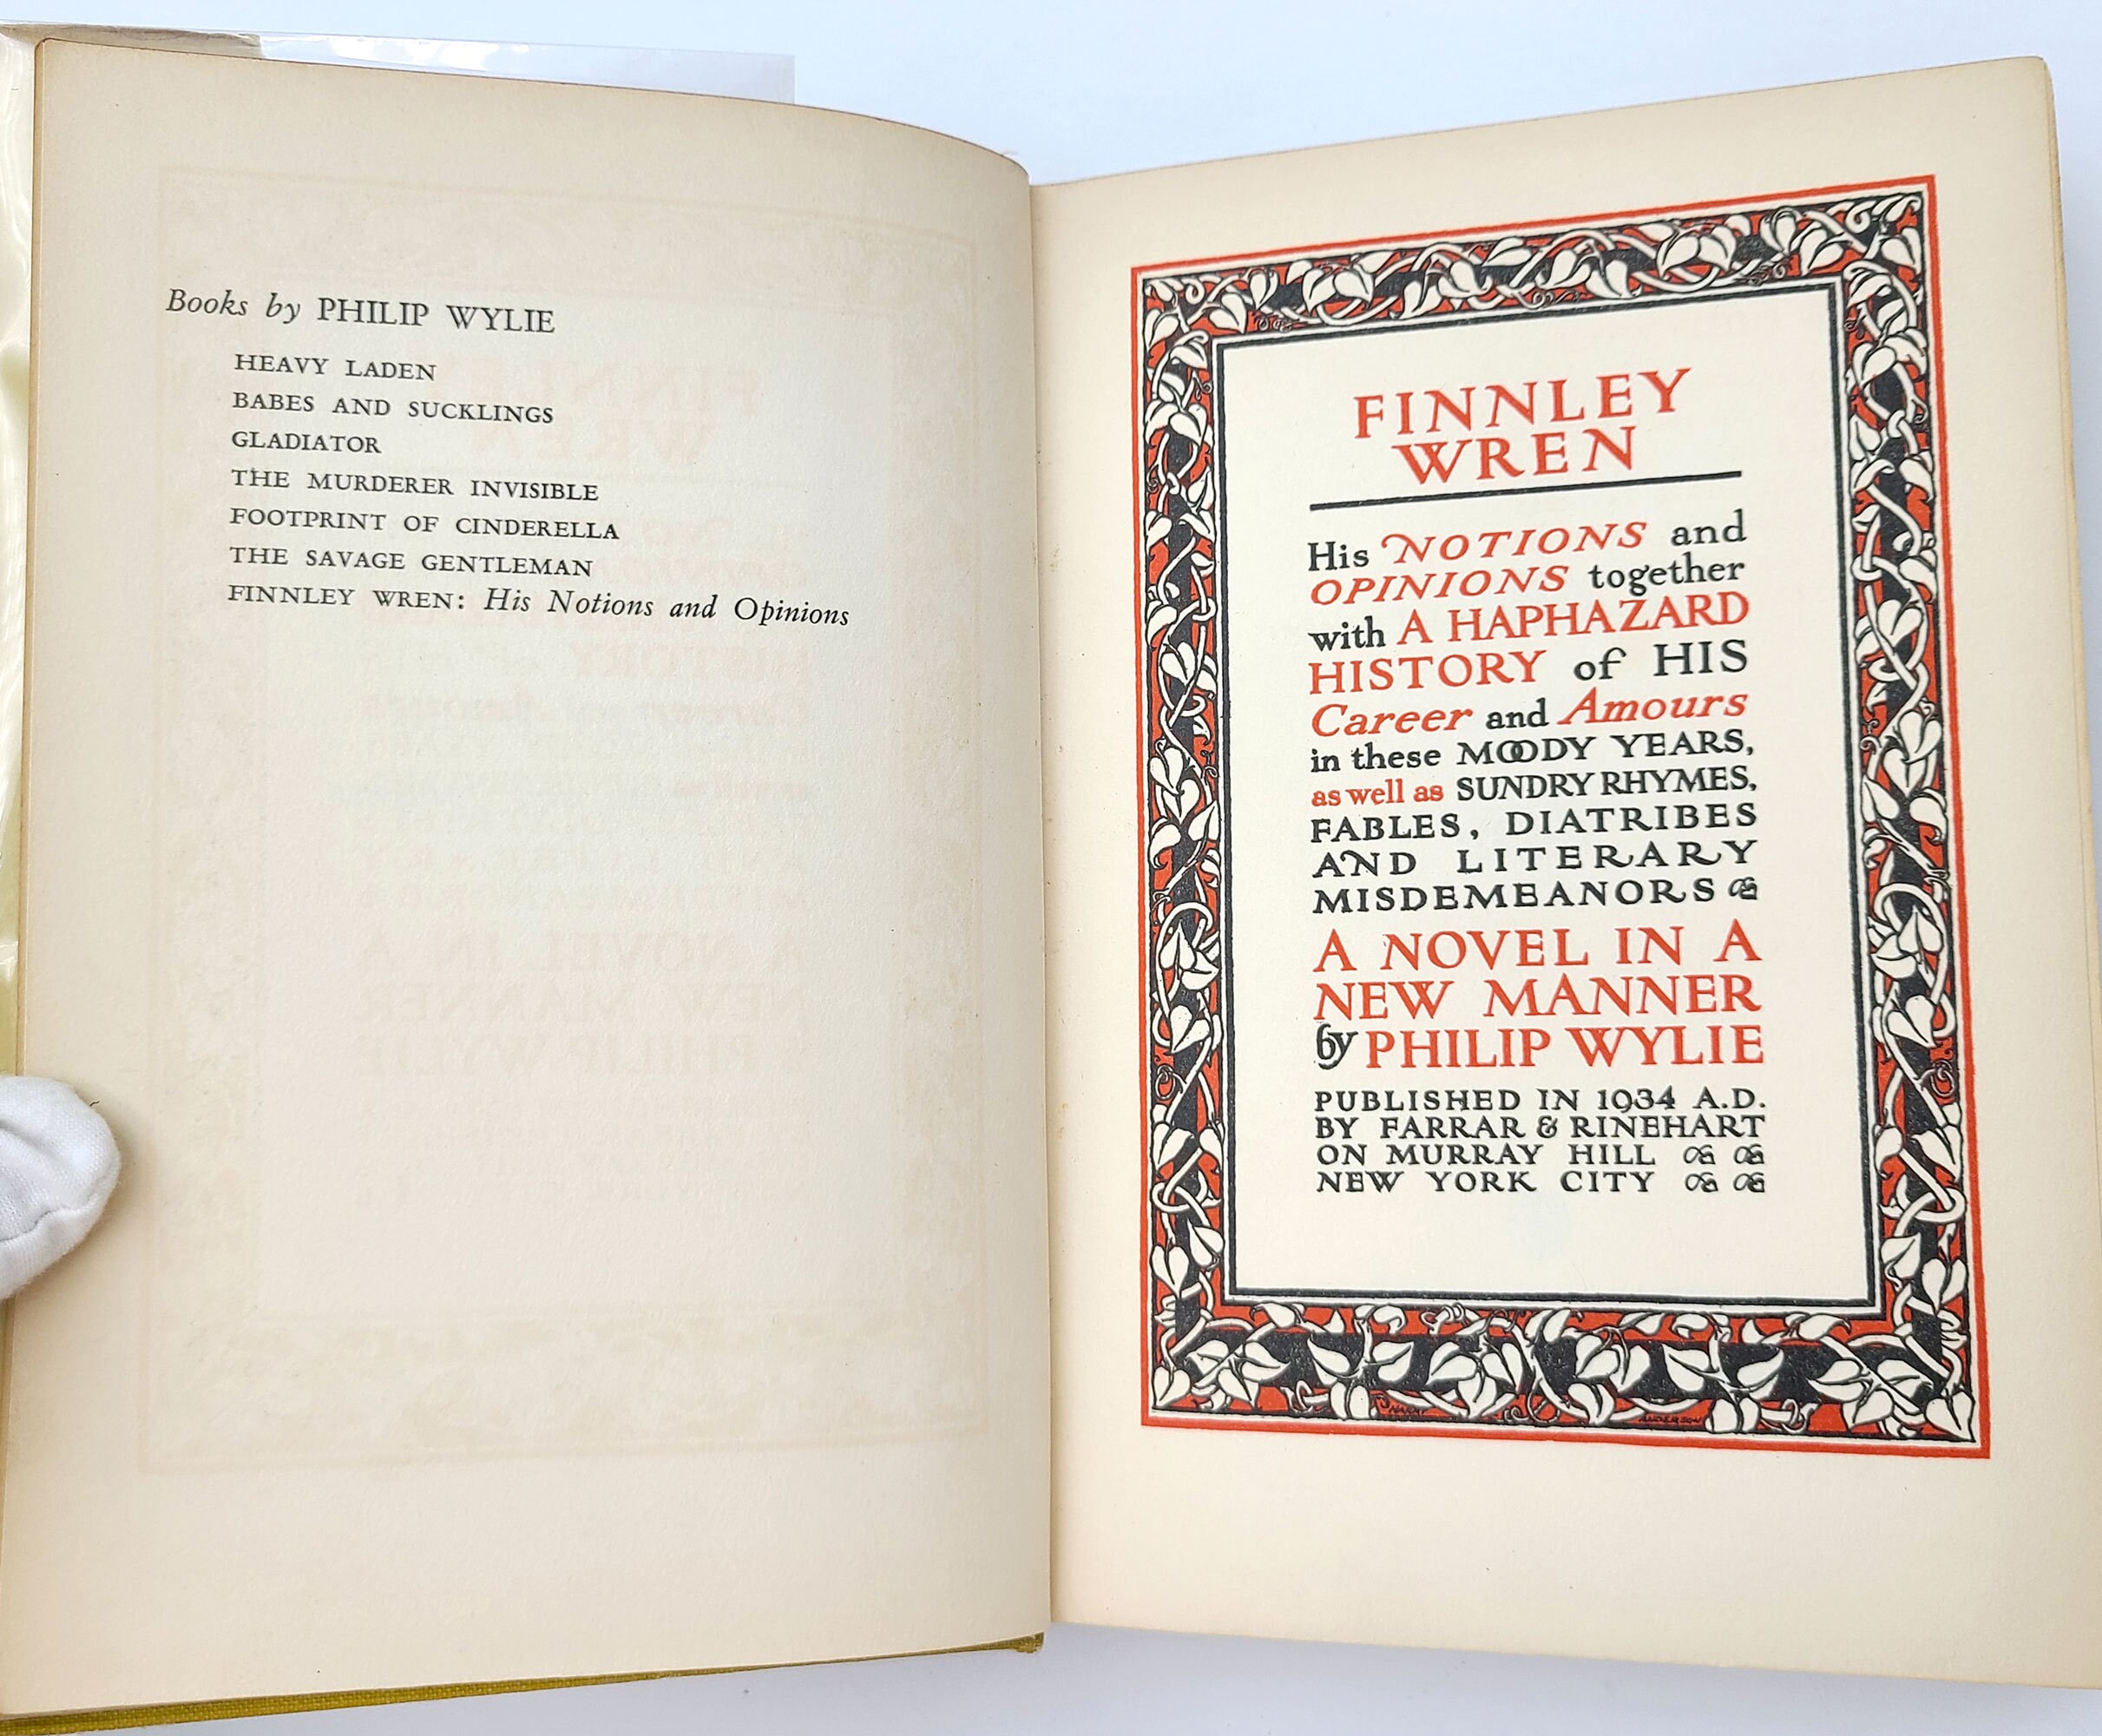 Books by PHILIP WYLIE
HEAVY LADEN
BABES AND SUCKLINGS
GLADIATOR
THE MURDERER INVISIBLE
FOOTPRINT OF CINDERELLA
THE SAVAGE GENTLEMAN
FINNLEY WREN: His Notions and Opinions
FINNLEY
WREN
His NOTIONS and
OPINIONS together
with A HAPHAZARD
HISTORY of HIS
Career and Amours
in these MOODY YEARS,
as well as SUNDRY RHYMES,
FABLES, DIATRIBES
AND LITERARY
MISDEMEANORS
A NOVEL IN A
NEW MANNER
by PHILIP WYLIE
PUBLISHED IN 1934 A.D.
BY FARRAR & RINEHART
ON MURRAY HILL
NEW YORK CITY
ANDERSON